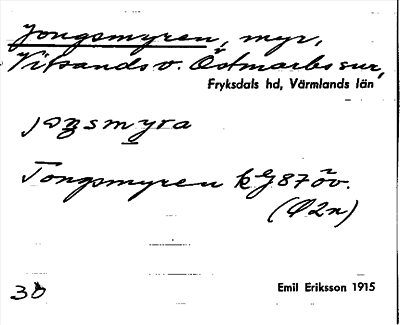 Jongsmyren, myr,
Vitsands o. Östmarks snr,
Fryksdals hd, Värmlands län
jɔŋsmyra
Tongsmyren kg 87 öv.
(Ø2n)
30
Emil Eriksson 1915